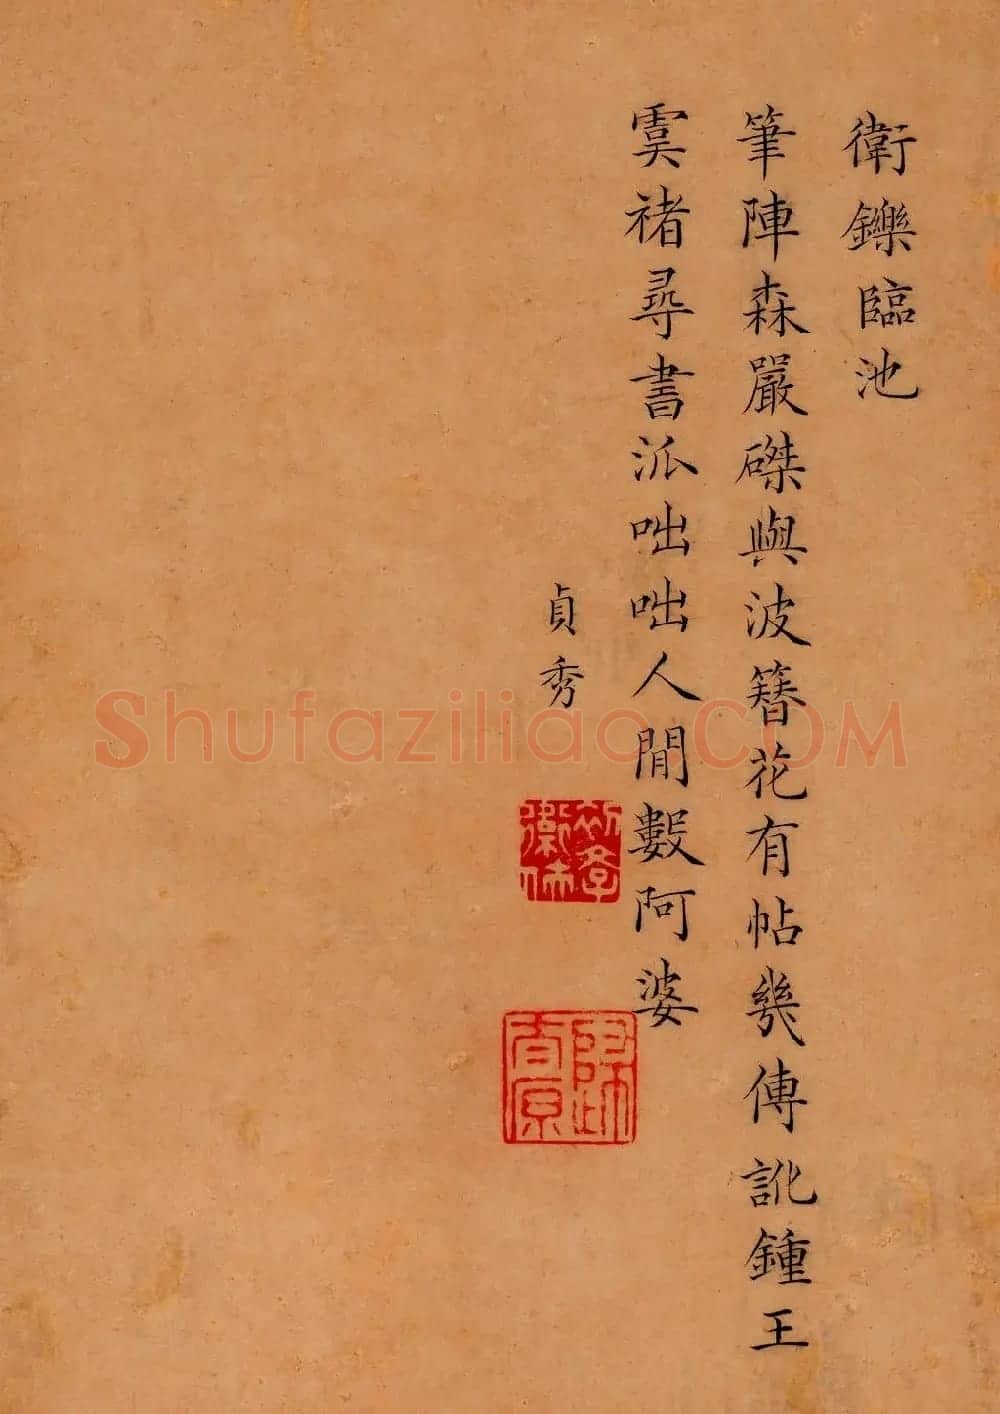 衛鑠臨池
筆陣森嚴磔與波簪花有帖幾傳訛鍾王
虞褚尋書派咄咄人間數阿婆
貞秀
ShufaziliaoCOM